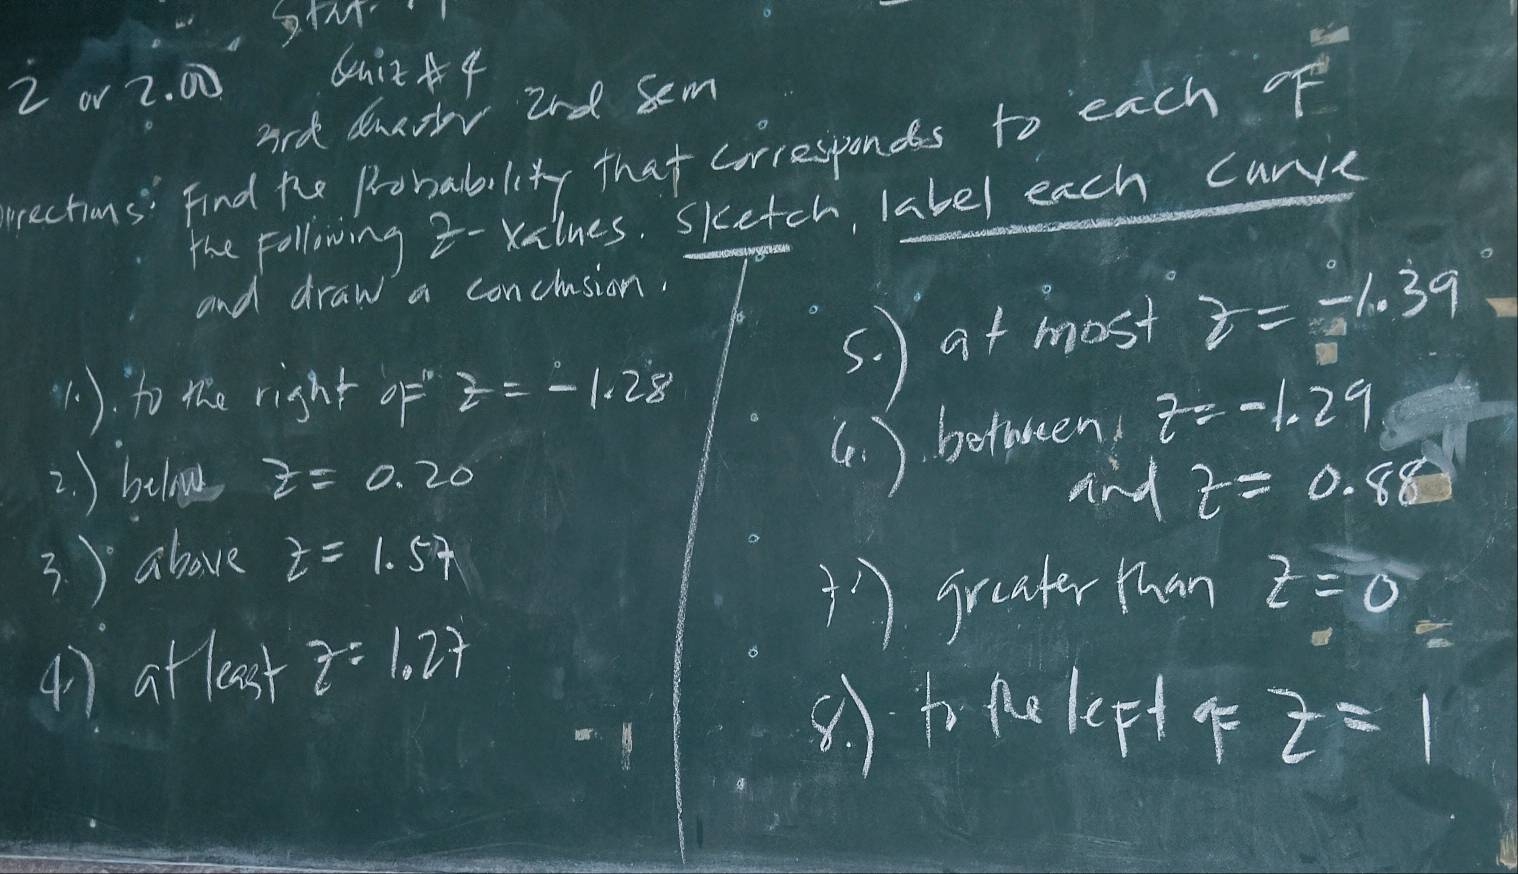 Stat.
2 or 2.00
Quiz # 4
3rd Quarter 2nd Sem
Directions: Find the Probability that corresponds to each of
the Following Z-Values. Sketch, label each curve
and draw a conclusion.
1.) to the right of z = -1.28
2.) below z = 0.20
3.) above z = 1.57
4.) at least z = 1.27
5.) at most z = -1.39
6.) between z = -1.29
and z = 0.88
7.) greater than z = 0
8.) to the left of z = 1